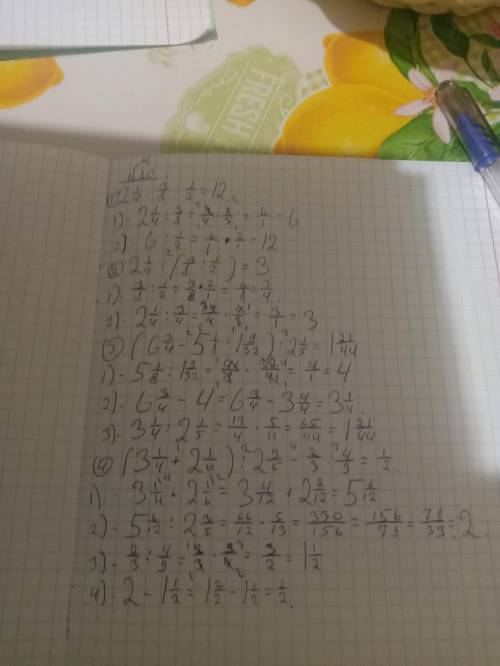 FRESH
1) 2 1/4 : 3/8 : 1/2 = 12.
1) - 2 1/4 : 3/8 = 9/4 · 8/3 = 6/1 = 6
2) 6 : 1/2 = 6/1 · 2/1 = 12
② 2 1/4 : (3/8 : 1/2) = 3
1) - 3/8 : 1/2 = 3/8 · 2/1 = 6/8 = 3/4.
2) - 2 1/4 : 3/4 = 9/4 · 4/3 = 3/1 = 3
③ (6 3/4 - 5 1/8 : 1 9/32) : 2 1/5 = 1 21/44
1) - 5 1/8 : 1 9/32 = 41/8 · 32/41 = 4/1 = 4
2) - 6 3/4 - 4 = 6 3/4 - 3 4/4 = 3 1/4.
3) - 3 1/4 : 2 1/5 = 13/4 · 5/11 = 65/44 = 1 21/44
④ (3 1/4 + 2 1/6) : 2 3/5 - 2/3 : 4/9 = 1/2.
1) - 3 1/4 + 2 1/6 = 3 4/12 + 2 2/12 = 5 6/12
2) - 5 6/12 : 2 3/5 = 66/12 · 5/13 = 330/156 = 156/73 = 78/39 = 2.
3) - 2/3 : 4/9 = 2/3 · 9/4 = 3/2 = 1 1/2
4) - 2 - 1 1/2 = 1 2/2 - 1 1/2 = 1/2.